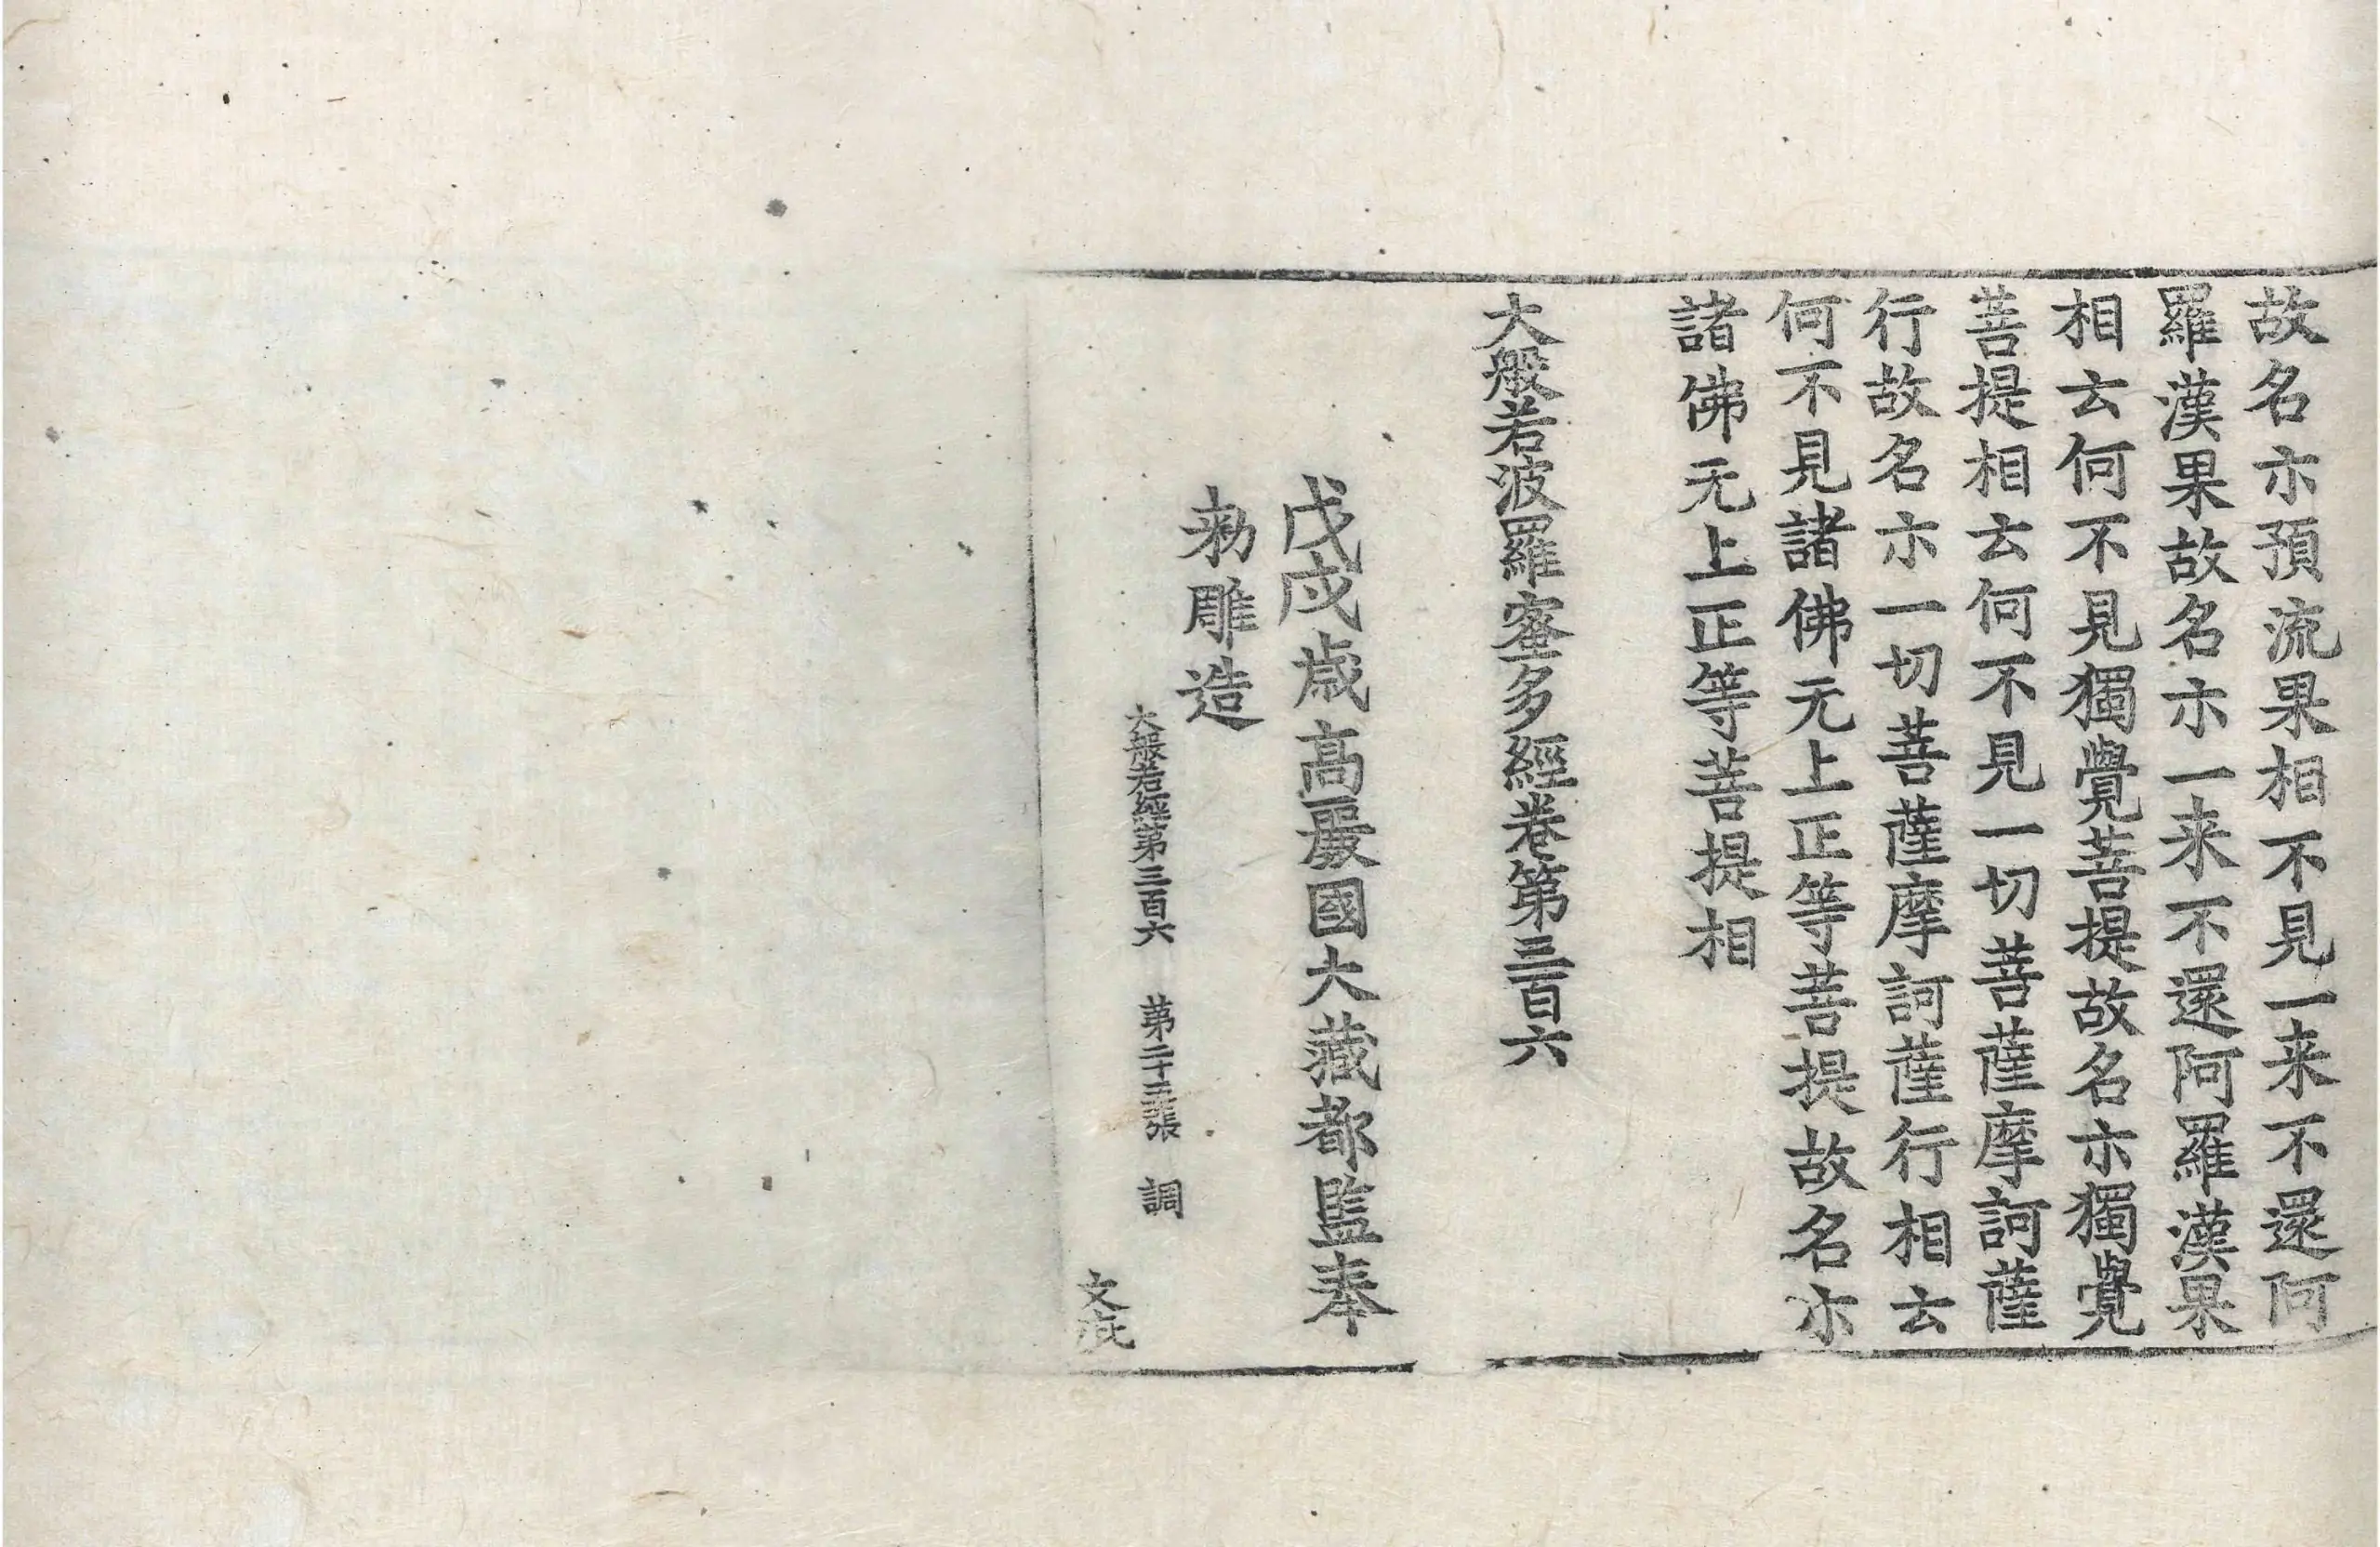 故名示預流果相不見一来不還阿
羅漢果故名示一来不還阿羅漢果
相云何不見獨覺菩提故名示獨覺
菩提相云何不見一切菩薩摩訶薩
行故名示一切菩薩摩訶薩行相云
何不見諸佛无上正等菩提故名示
諸佛无上正等菩提相
大般若波羅蜜多經卷第三百六
戊戌歳高麗國大藏都監奉
勑雕造
大般若經第三百六 第二十三張 調
文